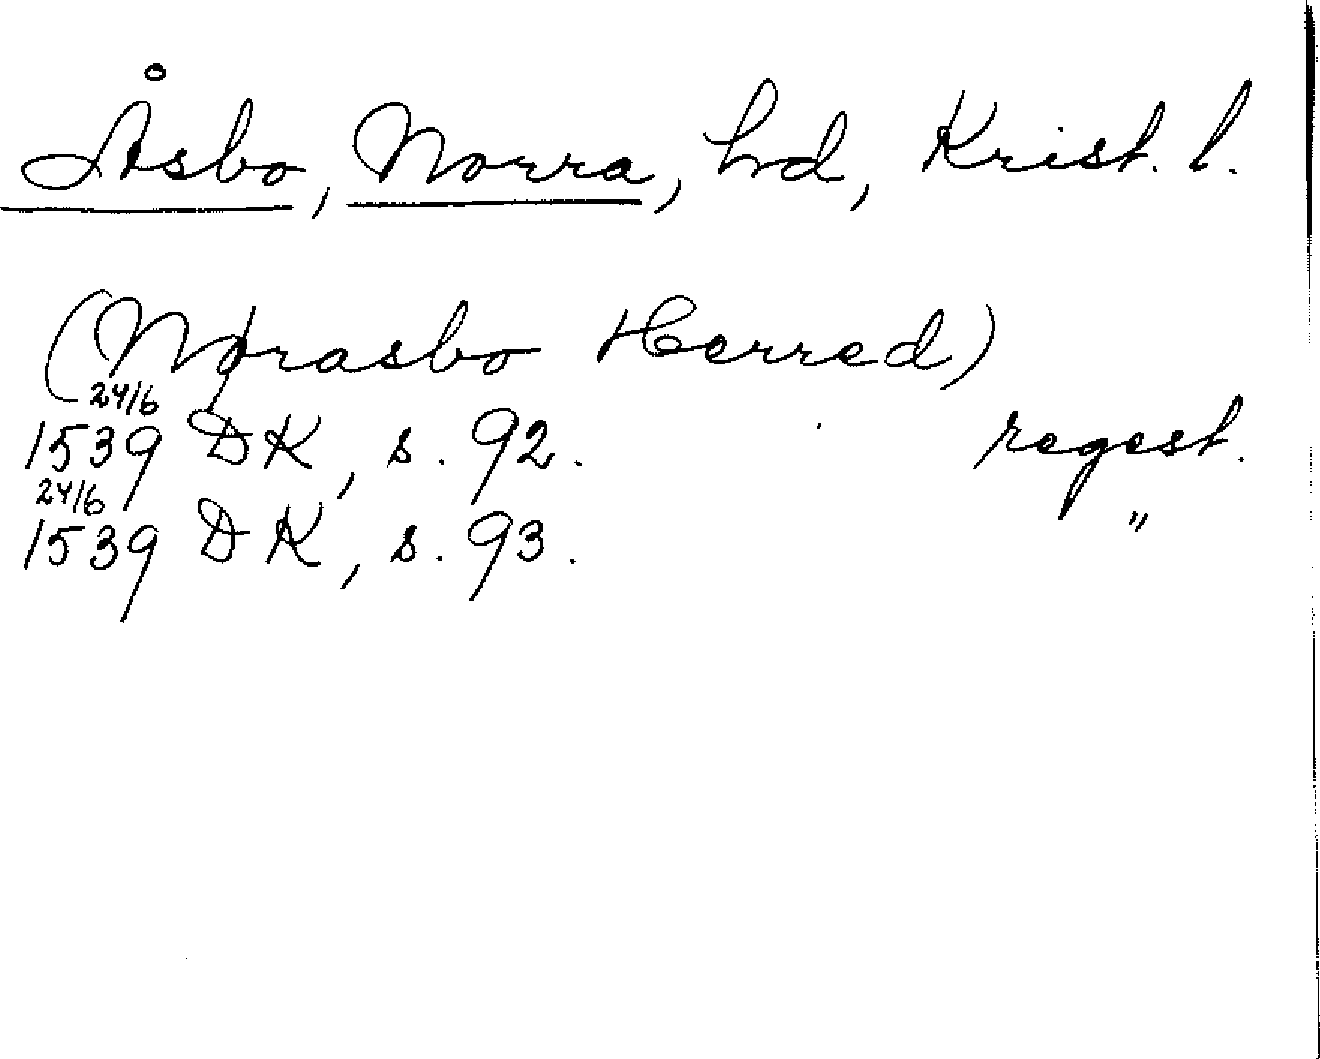 Åsbo, Norra, hd, Krist. l.
(Nørasbo Herred)
24/6
1539 DK, s. 92. regest.
24/6
1539 DK, s. 93. "